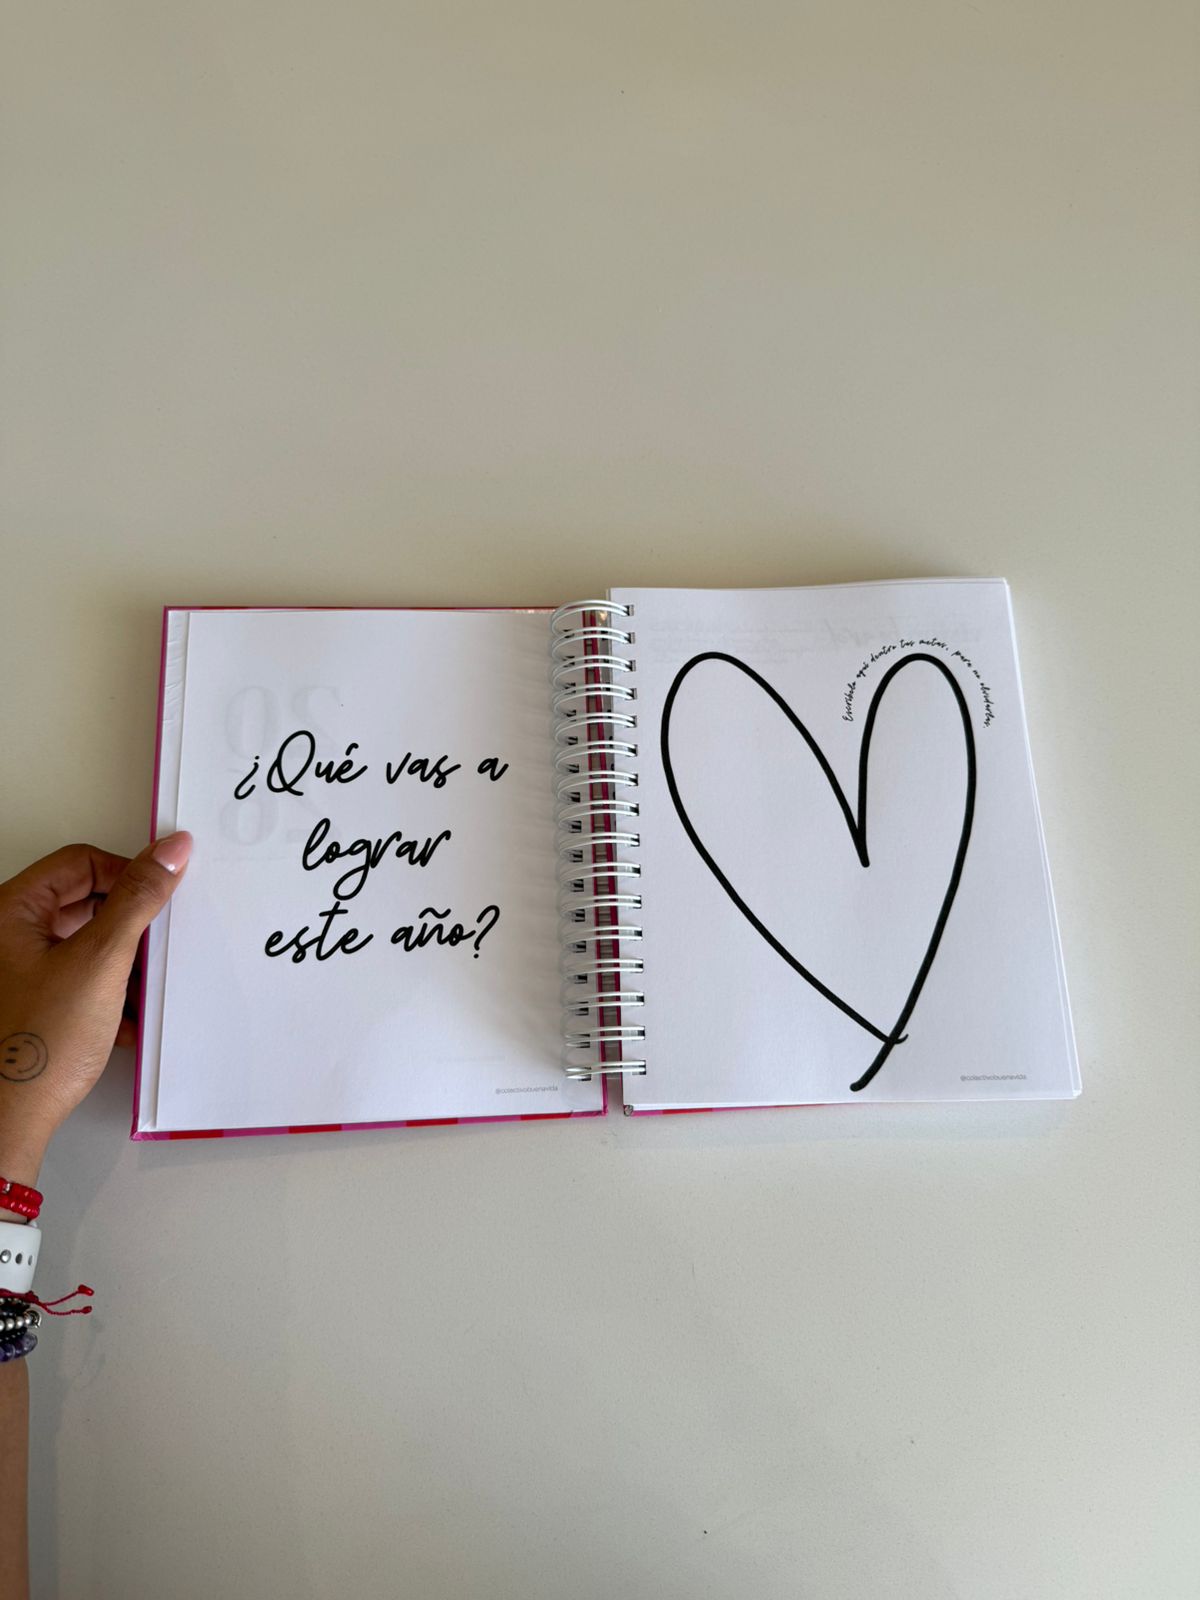 ¿Qué vas a
lograr
este año?
@colectivobuenavida
Escríbelo aquí dentro tus metas, para no olvidarlas.
@colectivobuenavida